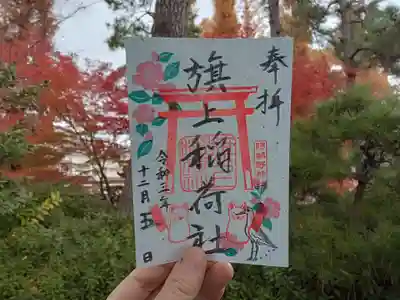 奉拝
旗上稲荷社
令和三年
十二月五日